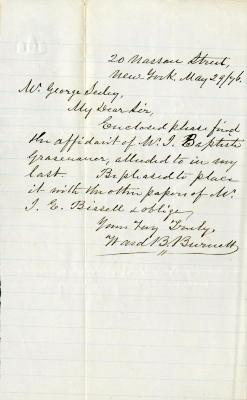 20 Nassau Street,
New York. May 29/76.
Mr. George Seeley,
My Dear Sir,
Enclosed please find
the affidavit of W. J. Baptiste
Grosvenor, alluded to in my
last. Be pleased to place
it with the other papers of Mr.
J. E. Bissell & oblige,
Yours Very Truly,
Ward B. Burnett